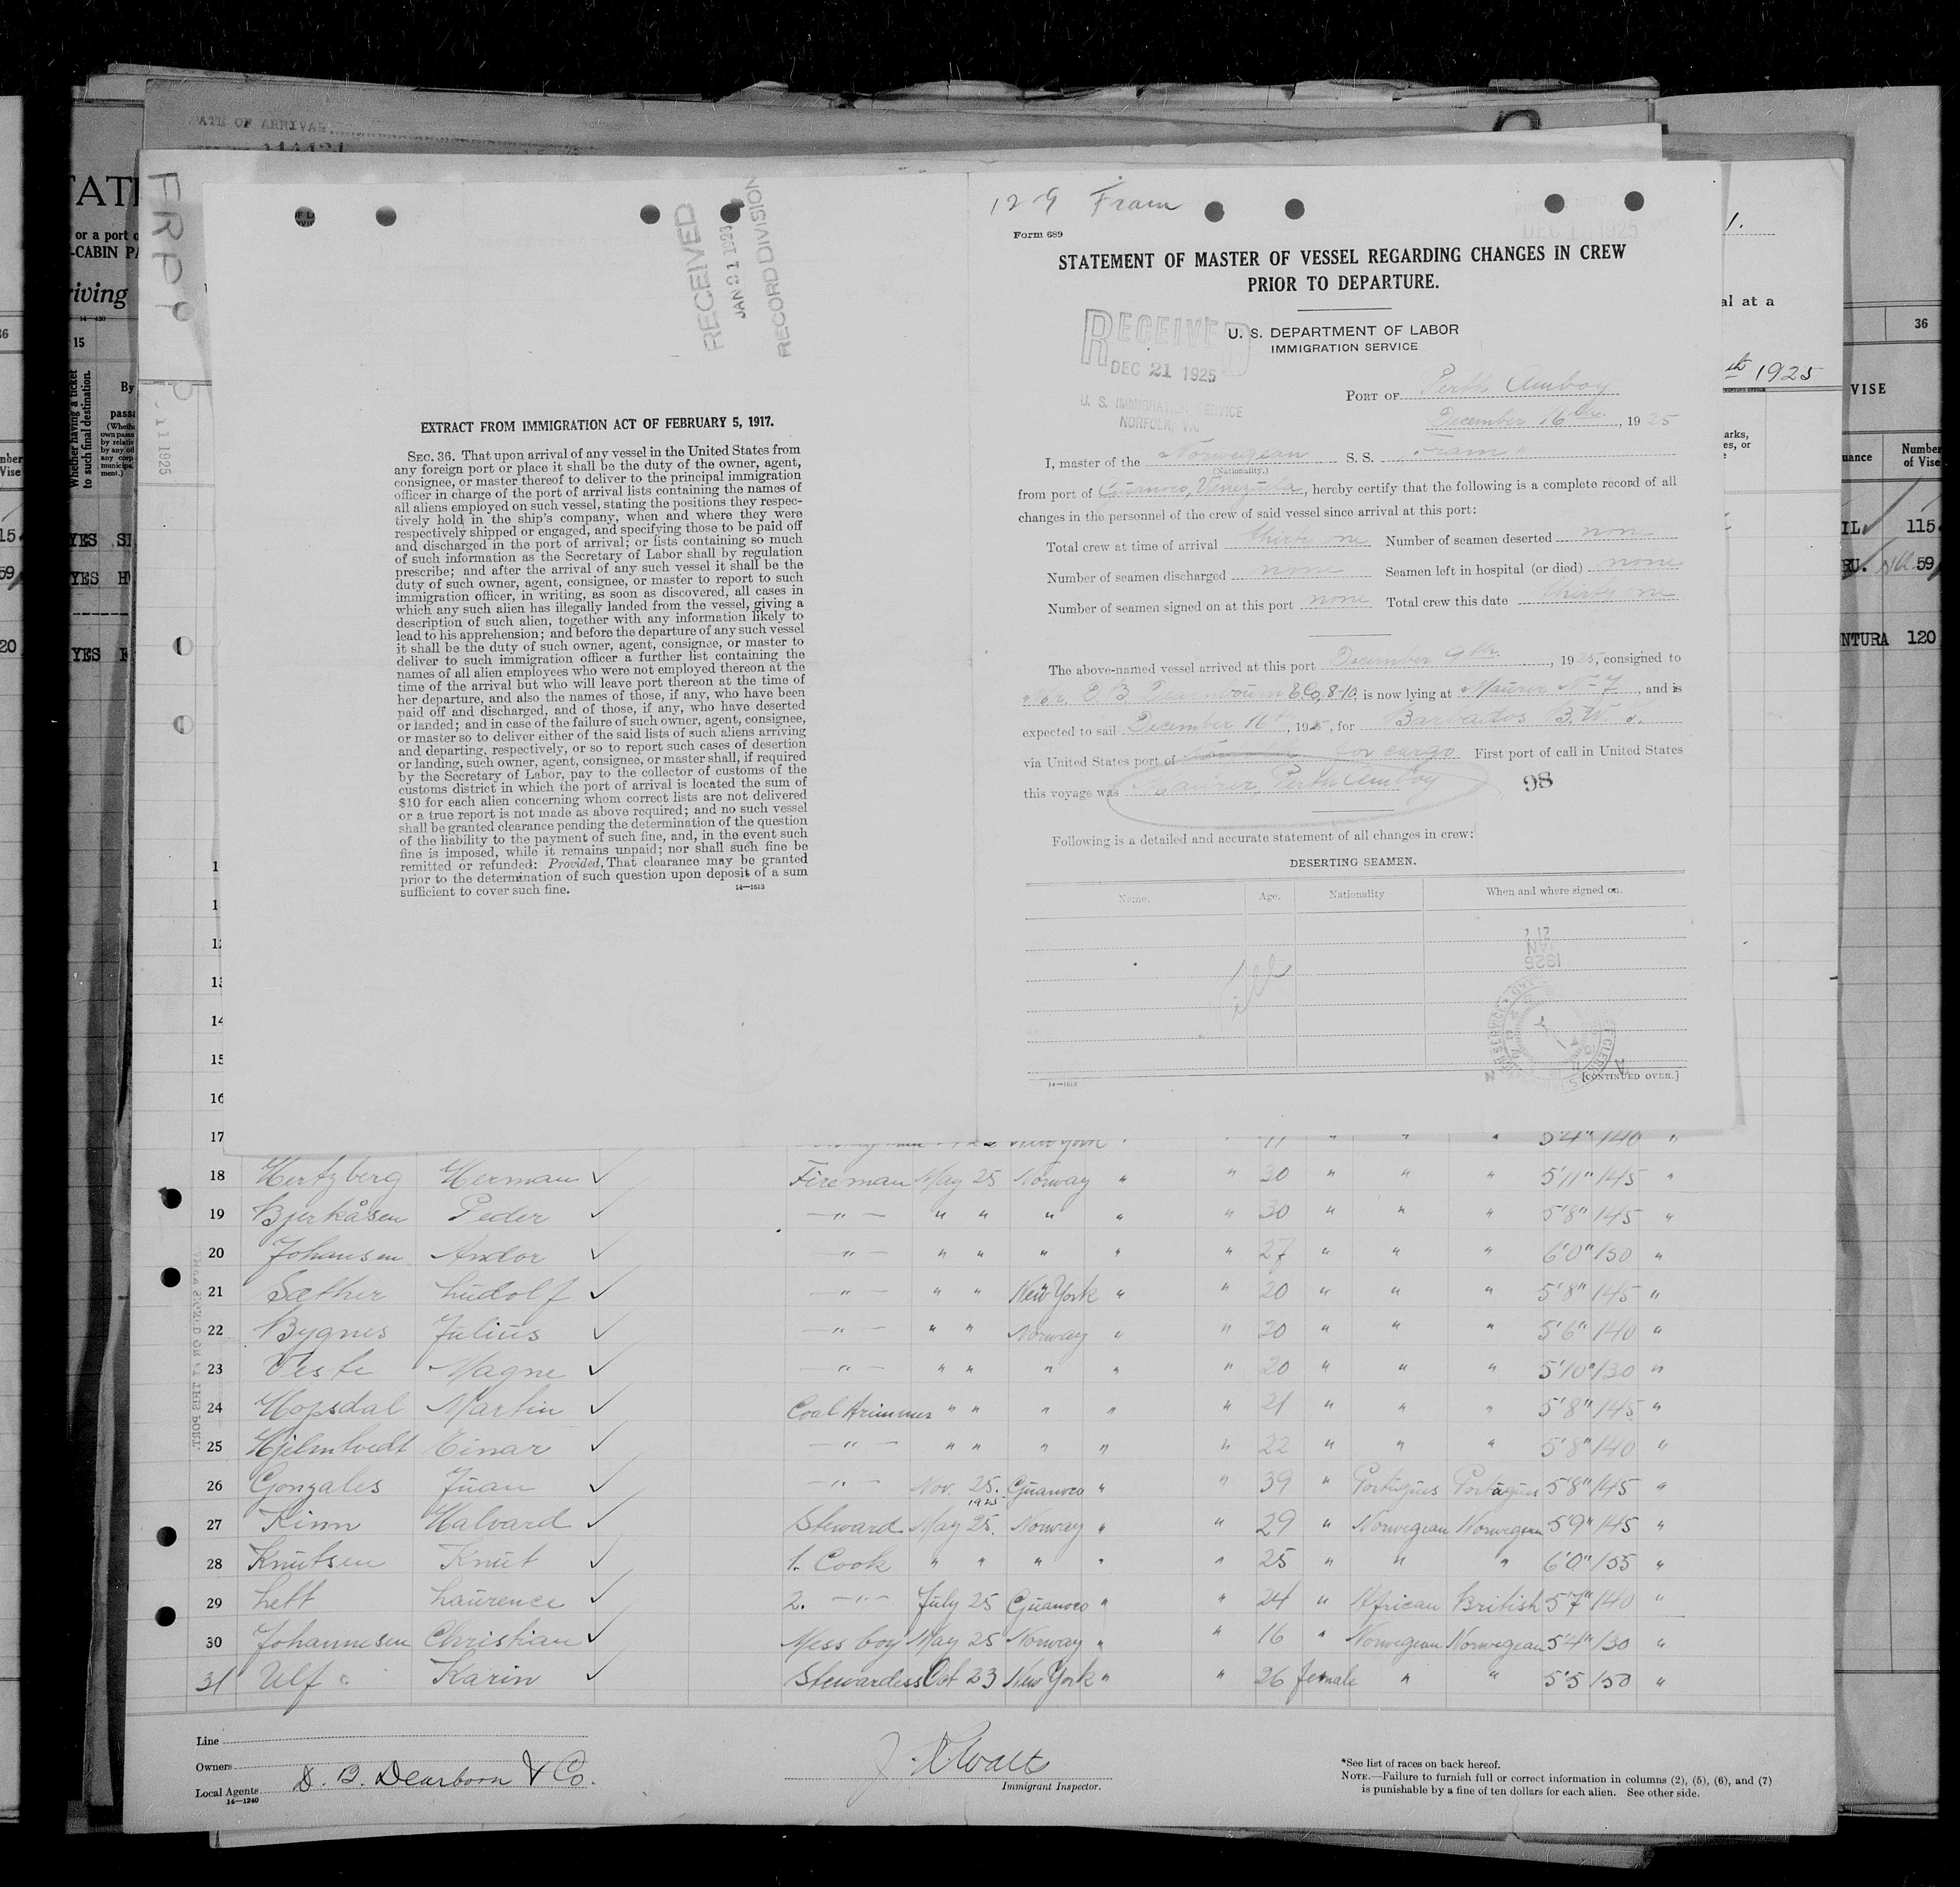 DATE OF ARRIVAL
RECEIVED
JAN 21 1926
RECORD DIVISION
EXTRACT FROM IMMIGRATION ACT OF FEBRUARY 5, 1917.
SEC. 36. That upon arrival of any vessel in the United States from
any foreign port or place it shall be the duty of the owner, agent,
consignee, or master thereof to deliver to the principal immigration
officer in charge of the port of arrival lists containing the names of
all aliens employed on such vessel, stating the positions they respec-
tively hold in the ship's company, when and where they were
respectively shipped or engaged, and specifying those to be paid off
and discharged in the port of arrival; or lists containing so much
of such information as the Secretary of Labor shall by regulation
prescribe; and after the arrival of any such vessel it shall be the
duty of such owner, agent, consignee, or master to report to such
immigration officer, in writing, as soon as discovered, all cases in
which any such alien has illegally landed from the vessel, giving a
description of such alien, together with any information likely to
lead to his apprehension; and before the departure of any such vessel
it shall be the duty of such owner, agent, consignee, or master to
deliver to such immigration officer a further list containing the
names of all alien employees who were not employed thereon at the
time of the arrival but who will leave port thereon at the time of
her departure, and also the names of those, if any, who have been
paid off and discharged, and of those, if any, who have deserted
or landed; and in case of the failure of such owner, agent, consignee,
or master so to deliver either of the said lists of such aliens arriving
and departing, respectively, or so to report such cases of desertion
or landing, such owner, agent, consignee, or master shall, if required
by the Secretary of Labor, pay to the collector of customs of the
customs district in which the port of arrival is located the sum of
$10 for each alien concerning whom correct lists are not delivered
or a true report is not made as above required; and no such vessel
shall be granted clearance pending the determination of the question
of the liability to the payment of such fine, and, in the event such
fine is imposed, while it remains unpaid; nor shall such fine be
remitted or refunded: Provided, That clearance may be granted
prior to the determination of such question upon deposit of a sum
sufficient to cover such fine.
14—1613
129 Fram
Form 689
DEC 1925
STATEMENT OF MASTER OF VESSEL REGARDING CHANGES IN CREW
PRIOR TO DEPARTURE.
U. S. DEPARTMENT OF LABOR
IMMIGRATION SERVICE
RECEIVED
DEC 21 1925
U. S. IMMIGRATION SERVICE
NORFOLK, VA.
PORT OF Perth Amboy
December 16th, 1925
I, master of the Norwegian S. S. "Fram"
(Nationality.)
from port of Guanoco, Venezuela, hereby certify that the following is a complete record of all
changes in the personnel of the crew of said vessel since arrival at this port:
Total crew at time of arrival thirty one Number of seamen deserted none
Number of seamen discharged none Seamen left in hospital (or died) none
Number of seamen signed on at this port none Total crew this date thirty one
The above-named vessel arrived at this port December 9th, 1925, consigned to
8-10, is now lying at Maurer No 7, and is
expected to sail December 16th, 1925, for Barbados B.W.I.
via United States port of for cargo First port of call in United States
this voyage was Maurer, Perth Amboy
98
Following is a detailed and accurate statement of all changes in crew:
DESERTING SEAMEN.
Name. Age. Nationality When and where signed on.
JAN 1926
14—1613
[CONTINUED OVER.]
th 1925
36
VISE
Number of Vise
115
59
NTURA 120
17 New York 5'4" 140 "
18 Hertzberg Herman ✓ Fireman May 25 Norway " " 30 " " " 5'11" 145 "
19 Bjerkåsen Peder ✓ —"— " " " " " 30 " " " 5'8" 145 "
20 Johansen Andor ✓ —"— " " " " " 27 " " " 6'0" 150 "
21 Sæther Ludolf ✓ —"— " " New York " " 20 " " " 5'8" 145 "
22 Bygnes Julius ✓ —"— " " Norway " " 20 " " " 5'6" 140 "
23 Veste Magne ✓ —"— " " " " " 20 " " " 5'10" 130 "
24 Hopsdal Martin ✓ Coal trimmer " " " " " 21 " " " 5'8" 145 "
25 Hjelmtvedt Einar ✓ —"— " " " " " 22 " " " 5'8" 140 "
26 Gonzales Juan ✓ —"— Nov. 25. 1925 Guanoco " " 39 " Portugues Portugues 5'8" 145 "
27 Kinn Halvard ✓ Steward May 25. Norway " " 29 " Norwegian Norwegian 5'9" 145 "
28 Knutsen Knut ✓ 1. Cook " " " " " 25 " " " 6'0" 155 "
29 Lett Laurence ✓ 2. —"— July 25 Guanoco " " 24 " African British 5'7" 140 "
30 Johannesen Christian ✓ Mess boy May 25 Norway " " 16 " Norwegian Norwegian 5'4" 130 "
31 Ulf Karin ✓ Stewardess Oct 23 New York " " 26 female " " 5'5 150 "
Line
Owners
Local Agents D. B. Dearborn & Co.
14—1240
Immigrant Inspector.
*See list of races on back hereof.
NOTE.—Failure to furnish full or correct information in columns (2), (5), (6), and (7)
is punishable by a fine of ten dollars for each alien. See other side.